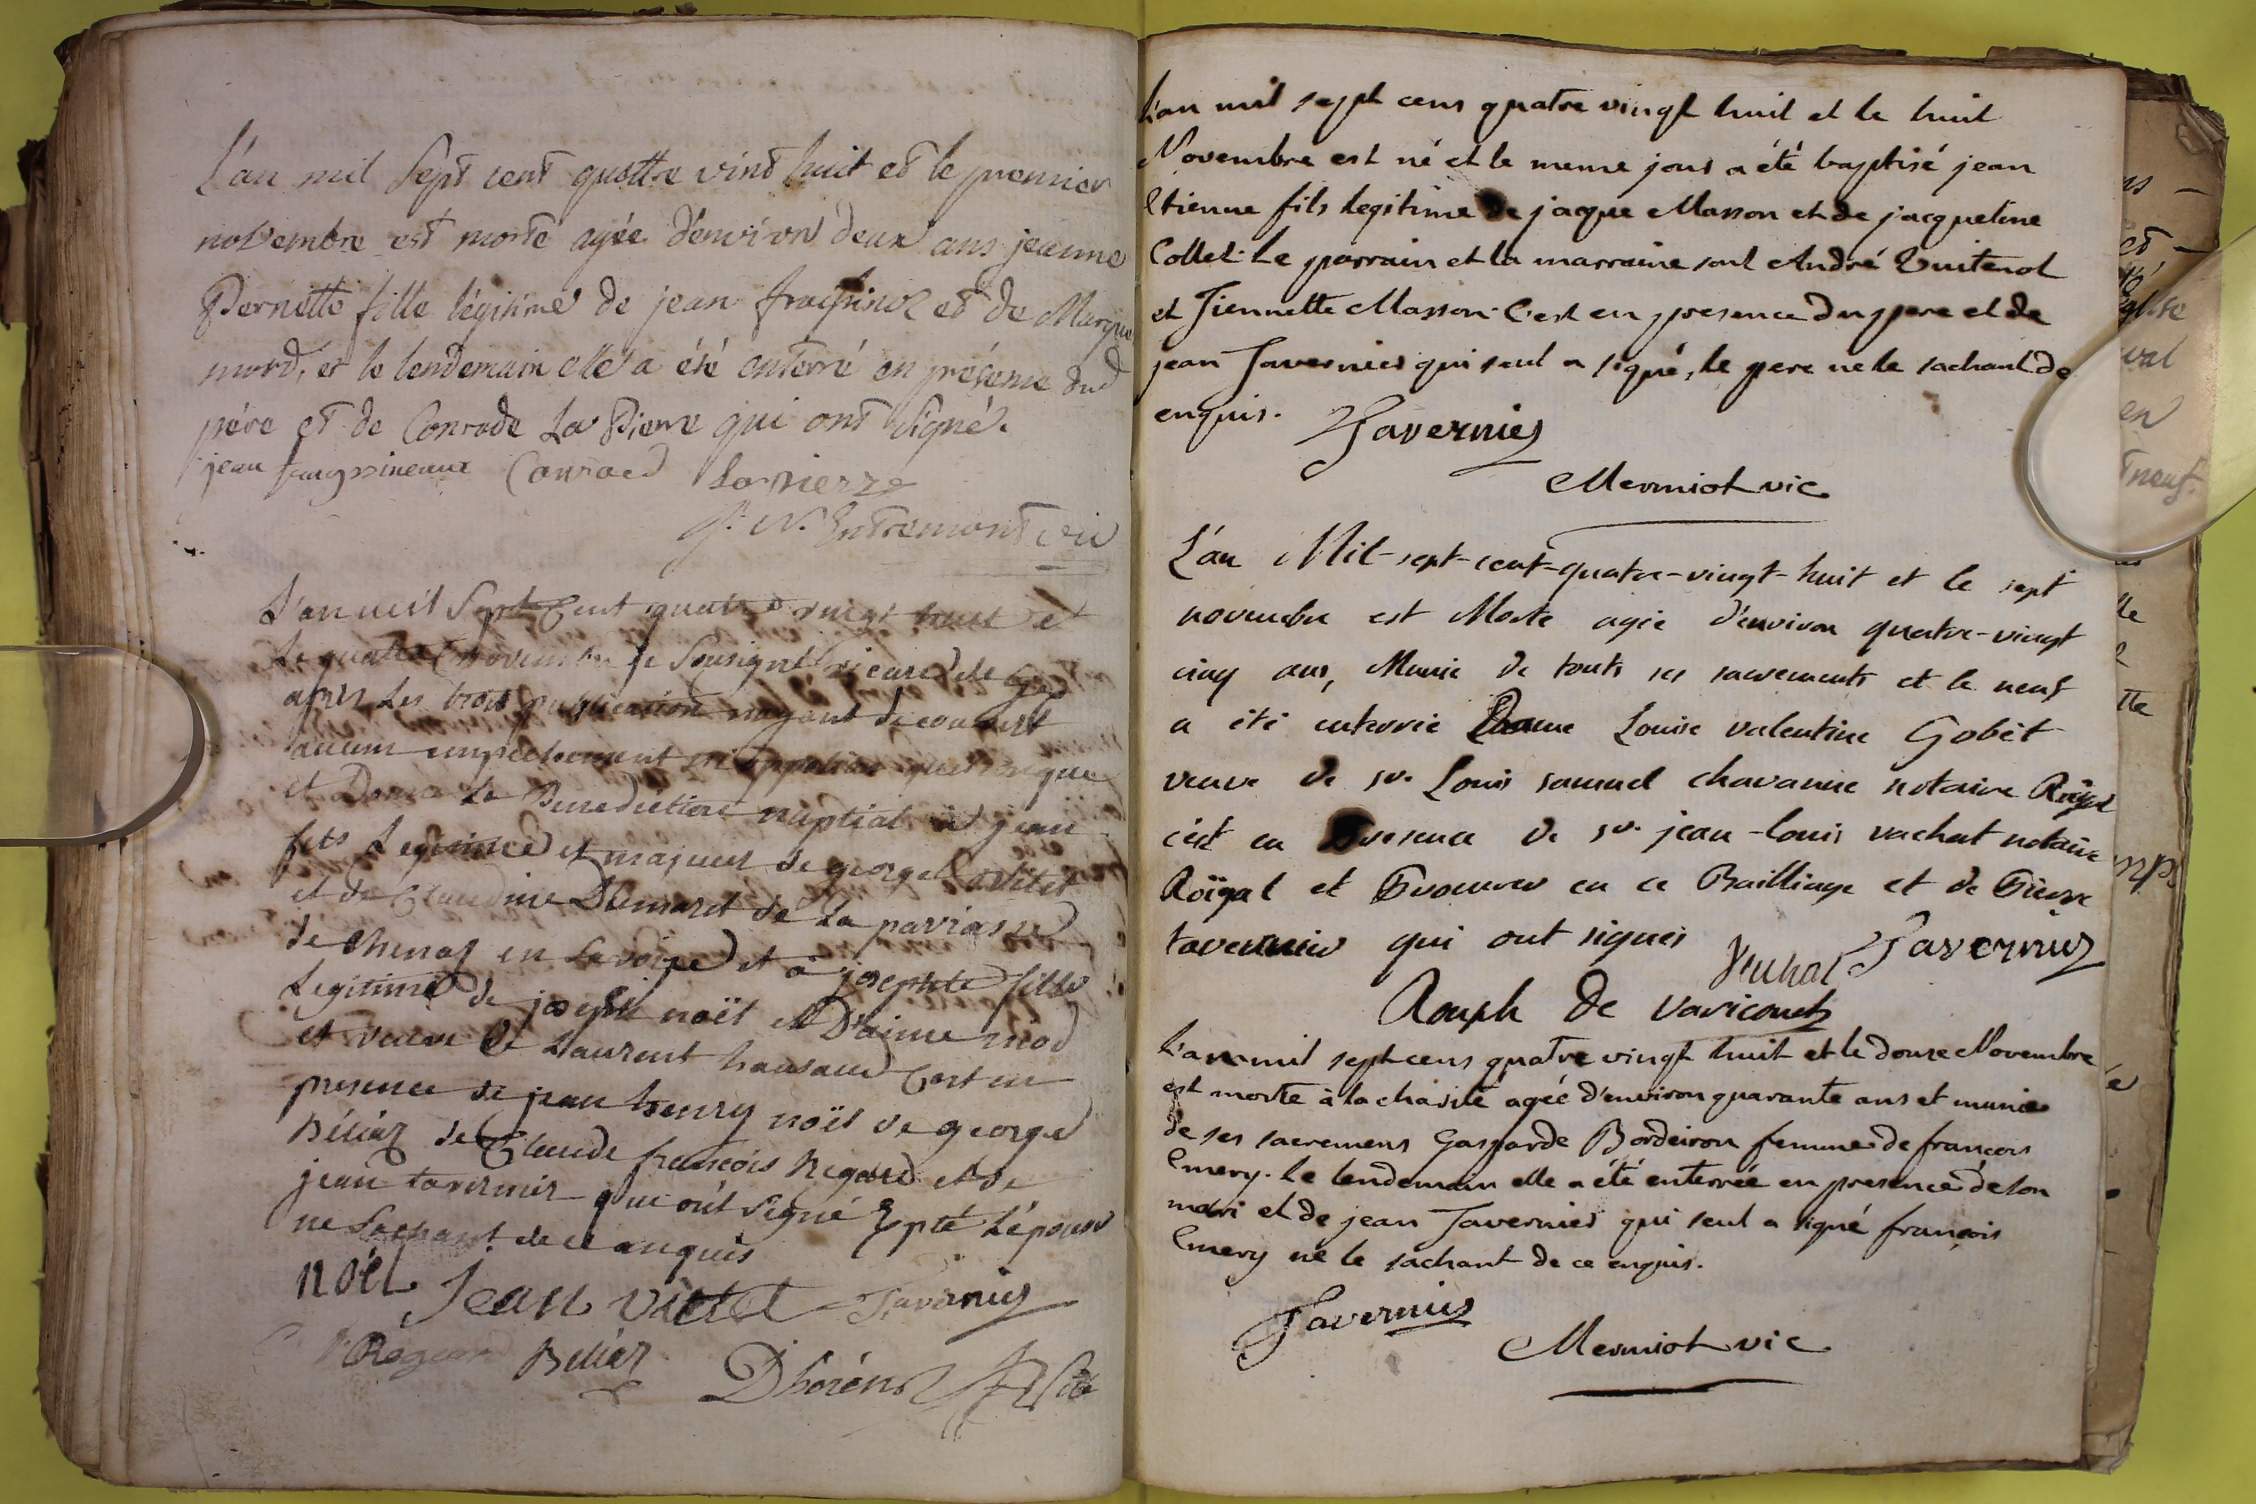 L'an mil Sept cent quattre vint huit et le premier
novembre est morte agée d'environ deux ans jeanne
Pernette fille légitime de jean et de Marque
mord, et le lendemain elle a été enterré en présence dud
père et de Conrade La Pierre qui ont Signé.
jean Conraed Lapierre
P. N. Entremont vic
L'an mil Sept Cent quatre vingt huit et
le quatre novembre je Sousigné vicaire de Gex
apres Les trois publications nayant decouvert
aucun empechement ni opposition quelconque
et Donné La Benediction nuptial à jean
fils Legitime et majeur de george vittet
et de Claudine Dumard de La parroisse
de Chenaz en Savoÿe et à josephte fille
Legitime de joseph noël et D'aime mod
et veuve de Laurent Cest en
presence de jean henry noël de george
Béliaz de Claude francois Regard et de
jean tavernier qui ont Signé Epte Lépouse
ne Sachant de ce anquis
noël Jean vittet Tavernier
Regard Béliaz
L'an mil sept cens quatre vingt huit et le huit
Novembre est né et le meme jour a été baptisé jean
Etienne fils legitime de jaque Masson et de jacqueline
Collet. Le parrain et la marraine sont André Vuitenot
et Tiennette Masson. C'est en presence du pere et de
jean Tavernier qui seul a signé, le pere ne le sachant de
enquis. Tavernier
Mermiot vic
L'an Mil-sept-cent-quatre-vingt-huit et le sept
novembre est Morte agée d'environ quatre-vingt
cinq ans, Munie de touts ses sacrements et le neuf
a été enterrée Dame Louise valentine Gobèt
veuve de sr. Louis samuel chavanne notaire Roïyal
c'est en presence de sr. jean-louis vachat notaire
Roïyal et Procureur en ce Bailliage et de Pierre
tavernier qui ont signés Vuchat Tavernier
Rouph de varicourt
L'an mil sept cens quatre vingt huit et le douze Novembre
est morte à la charité agée d'environ quarante ans et munie
de ses sacremens Gasparde Bordeiron femme de francois
Emery. Le lendemain elle a été enterrée en presence de son
mari et de jean Tavernier qui seul a signé francois
Emery ne le sachant de ce enquis.
Tavernier
Mermiot vic